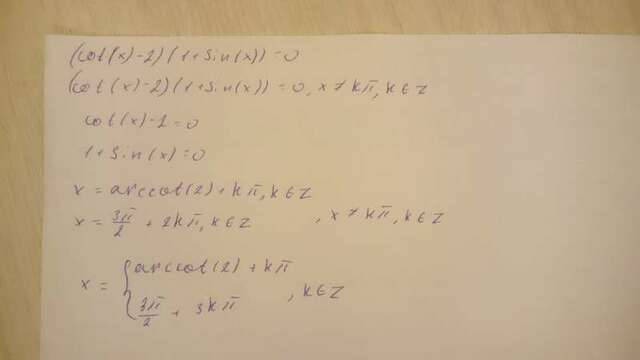 (cot(x)-2)(1+sin(x))=0
(cot(x)-2)(1+sin(x))=0, x≠kπ, k∈Z
cot(x)-2=0
1+sin(x)=0
x=arccot(2)+kπ, k∈Z
x=3π/2+2kπ, k∈Z , x≠kπ, k∈Z
x={arccot(2)+kπ
3π/2+3kπ , k∈Z